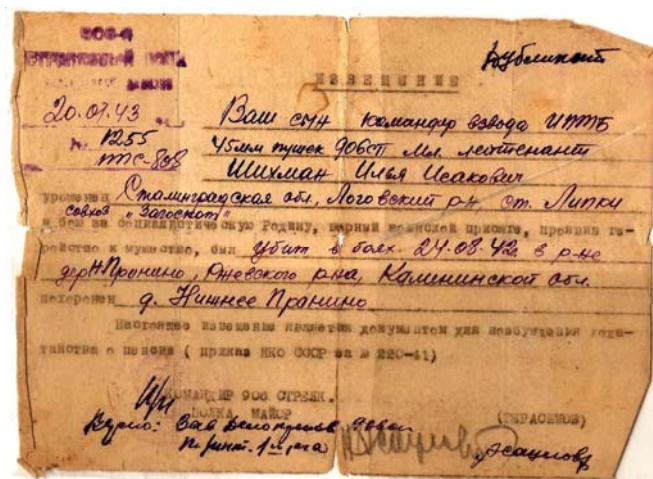 906-й
СТРЕЛКОВЫЙ ПОЛК
Дубликат
ИЗВЕЩЕНИЕ
20.01.43
Ваш сын командир взвода ИПТБ
№ 1255
45мм пушек 906СП Мл. лейтенант
ппс-808
Шихман Илья Исакович
уроженец Сталинградская обл., Логовский р-н, ст. Липки
совхоз "Загоскот"
в бою за социалистическую Родину, верный воинской присяге, проявив ге-
ройство и мужество, был убит в боях 24.08.42г. в р-не
дер Н. Пронино, Ржевского р-на, Калининской обл.
похоронен д. Нижнее Пранино
Настоящее извещение является документом для возбуждения хода-
тайства о пенсии ( приказ НКО СССР за № 220-41)
КОМАНДИР 906 СТРЕЛК.
ПОЛКА МАЙОР (ГЕРАСИМОВ)
Верно: Зав Делопроизв 906сп